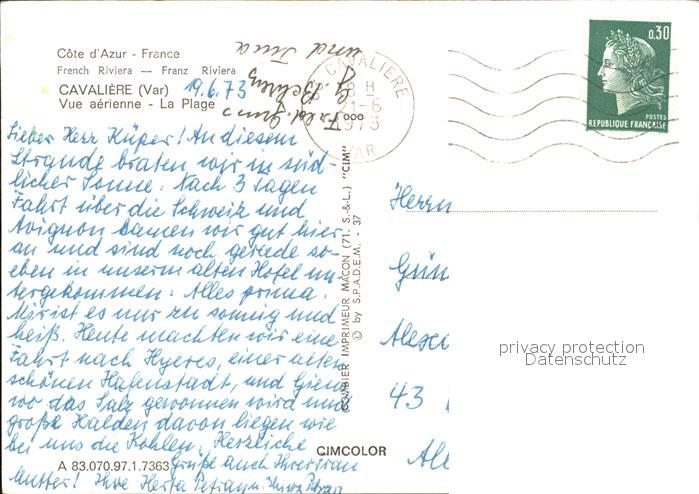 Côte d'Azur - France
French Riviera — Franz Riviera
CAVALIÈRE (Var)
Vue aérienne - La Plage
19.6.73
und
Lieber Herr Küper! An diesem
Strande braten wir in süd-
licher Sonne. Nach 3 Tagen
Fahrt über die Schweiz und
Avignon kamen wir gut hier
an und sind noch gerade so-
eben in unserm alten Hotel un-
tergekommen. Alles prima.
Mir ist es nur zu sonnig und
heiß. Heute machten wir eine
Fahrt nach Hyeres, einer alten
schönen Hafenstadt, und Giens
wo das Salz gewonnen wird und
große Halden davon liegen wie
bei uns die Kohlen. Herzliche
Grüße auch Ihrer Frau
Mutter! Ihre Herta
CAVALIERE
18 H
21-6
1973
VAR
0,30
POSTES
REPUBLIQUE FRANÇAISE
COMBIER IMPRIMEUR MACON (71. S.-&-L.) "CIM"
© by S.P.A.D.E.M. - 37
Herrn
Gün
Alexa
43
All
privacy protection
Datenschutz
CIMCOLOR
A 83.070.97.1.7363